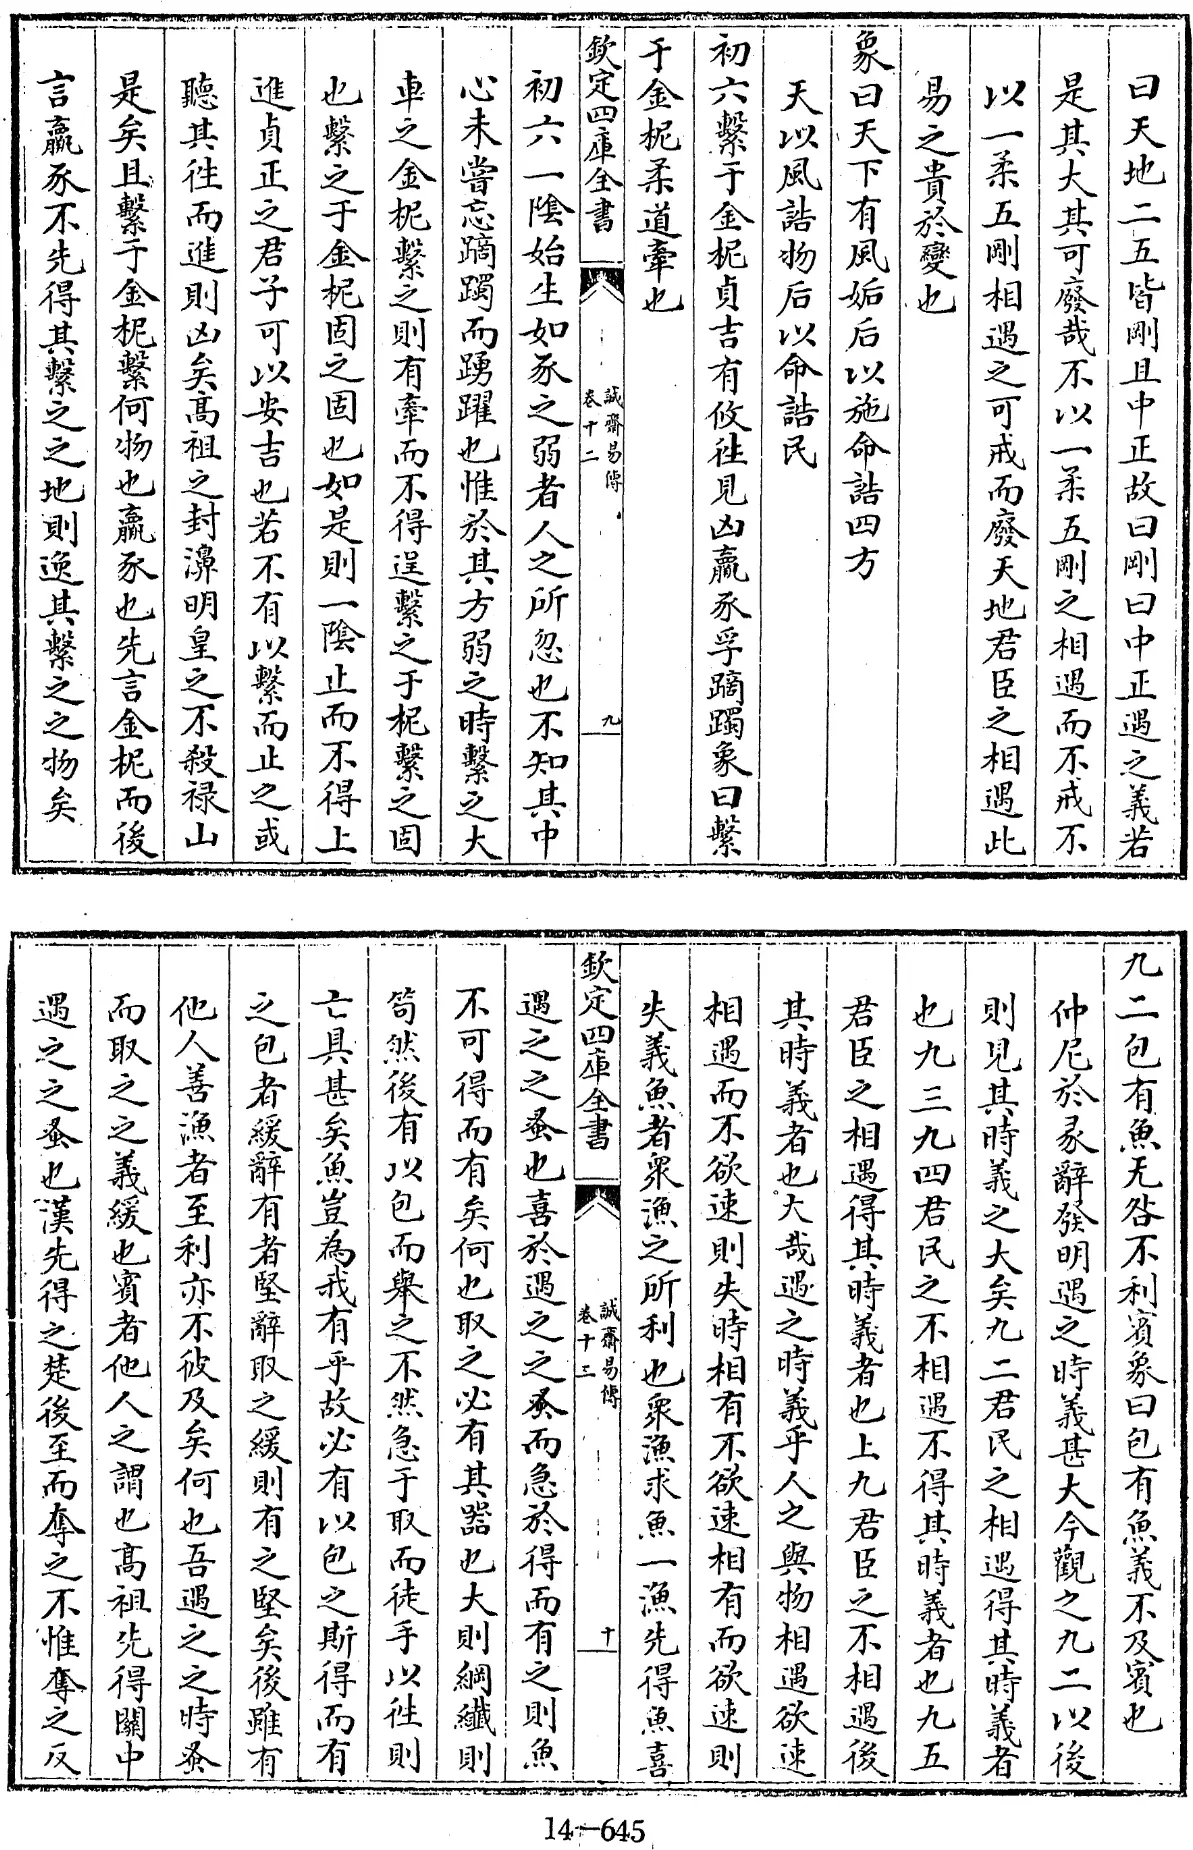 曰天地二五皆剛且中正故曰剛曰中正遇之義若
是其大其可廢哉不以一柔五剛之相遇而不戒不
以一柔五剛相遇之可戒而廢天地君臣之相遇此
易之貴於變也
象曰天下有風姤后以施命誥四方
天以風誥物后以命誥民
初六繫于金柅貞吉有攸往見凶羸豕孚蹢躅象曰繫
于金柅柔道牽也
欽定四庫全書
誠齋易傳
卷十二
九
初六一陰始生如豕之弱者人之所忽也不知其中
心未嘗忘蹢躅而踴躍也惟於其方弱之時繫之大
車之金柅繫之則有牽而不得逞繫之于柅繫之固
也繫之于金柅固之固也如是則一陰止而不得上
進貞正之君子可以安吉也若不有以繫而止之或
聽其往而進則凶矣髙祖之封濞明皇之不殺禄山
是矣且繫于金柅繫何物也羸豕也先言金柅而後
言羸豕不先得其繫之之地則逸其繫之之物矣
九二包有魚无咎不利賓象曰包有魚義不及賓也
仲尼於彖辭發明遇之時義甚大今觀之九二以後
則見其時義之大矣九二君民之相遇得其時義者
也九三九四君民之不相遇不得其時義者也九五
君臣之相遇得其時義者也上九君臣之不相遇後
其時義者也大哉遇之時義乎人之與物相遇欲速
相遇而不欲速則失時相有不欲速相有而欲速則
失義魚者衆漁之所利也衆漁求魚一漁先得魚喜
欽定四庫全書
誠齋易傳
卷十二
十
遇之之蚤也喜於遇之之蚤而急於得而有之則魚
不可得而有矣何也取之必有其器也大則綱纖則
笱然後有以包而舉之不然急于取而徒手以往則
亡具甚矣魚豈為我有乎故必有以包之斯得而有
之包者緩辭有者堅辭取之緩則有之堅矣後雖有
他人善漁者至利亦不彼及矣何也吾遇之之時蚤
而取之之義緩也賓者他人之謂也髙祖先得關中
遇之之蚤也漢先得之楚後至而奪之不惟奪之反
14-645